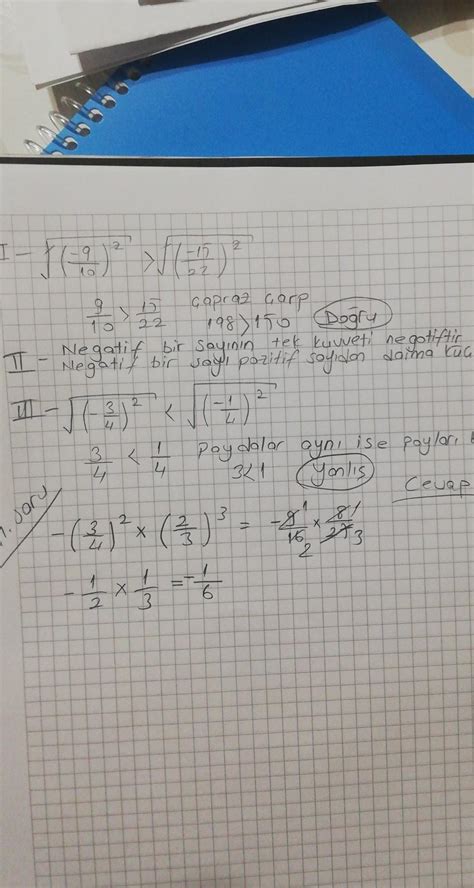 I - √(-9/10)² > √(-15/22)²
9/10 > 15/22 çapraz çarp
198 > 150 Doğru
II - Negatif bir sayının tek kuvveti negatiftir
Negatif bir sayı pozitif sayıdan daima
III - √(-3/4)² < √(-1/4)²
3/4 < 1/4 Paydalar aynı ise payları
3<1 Yanlış
Cevap
soru
-(3/4)² × (2/3)³ = -9/16 × 8/27
1 1
2 3
-1/2 × 1/3 = -1/6